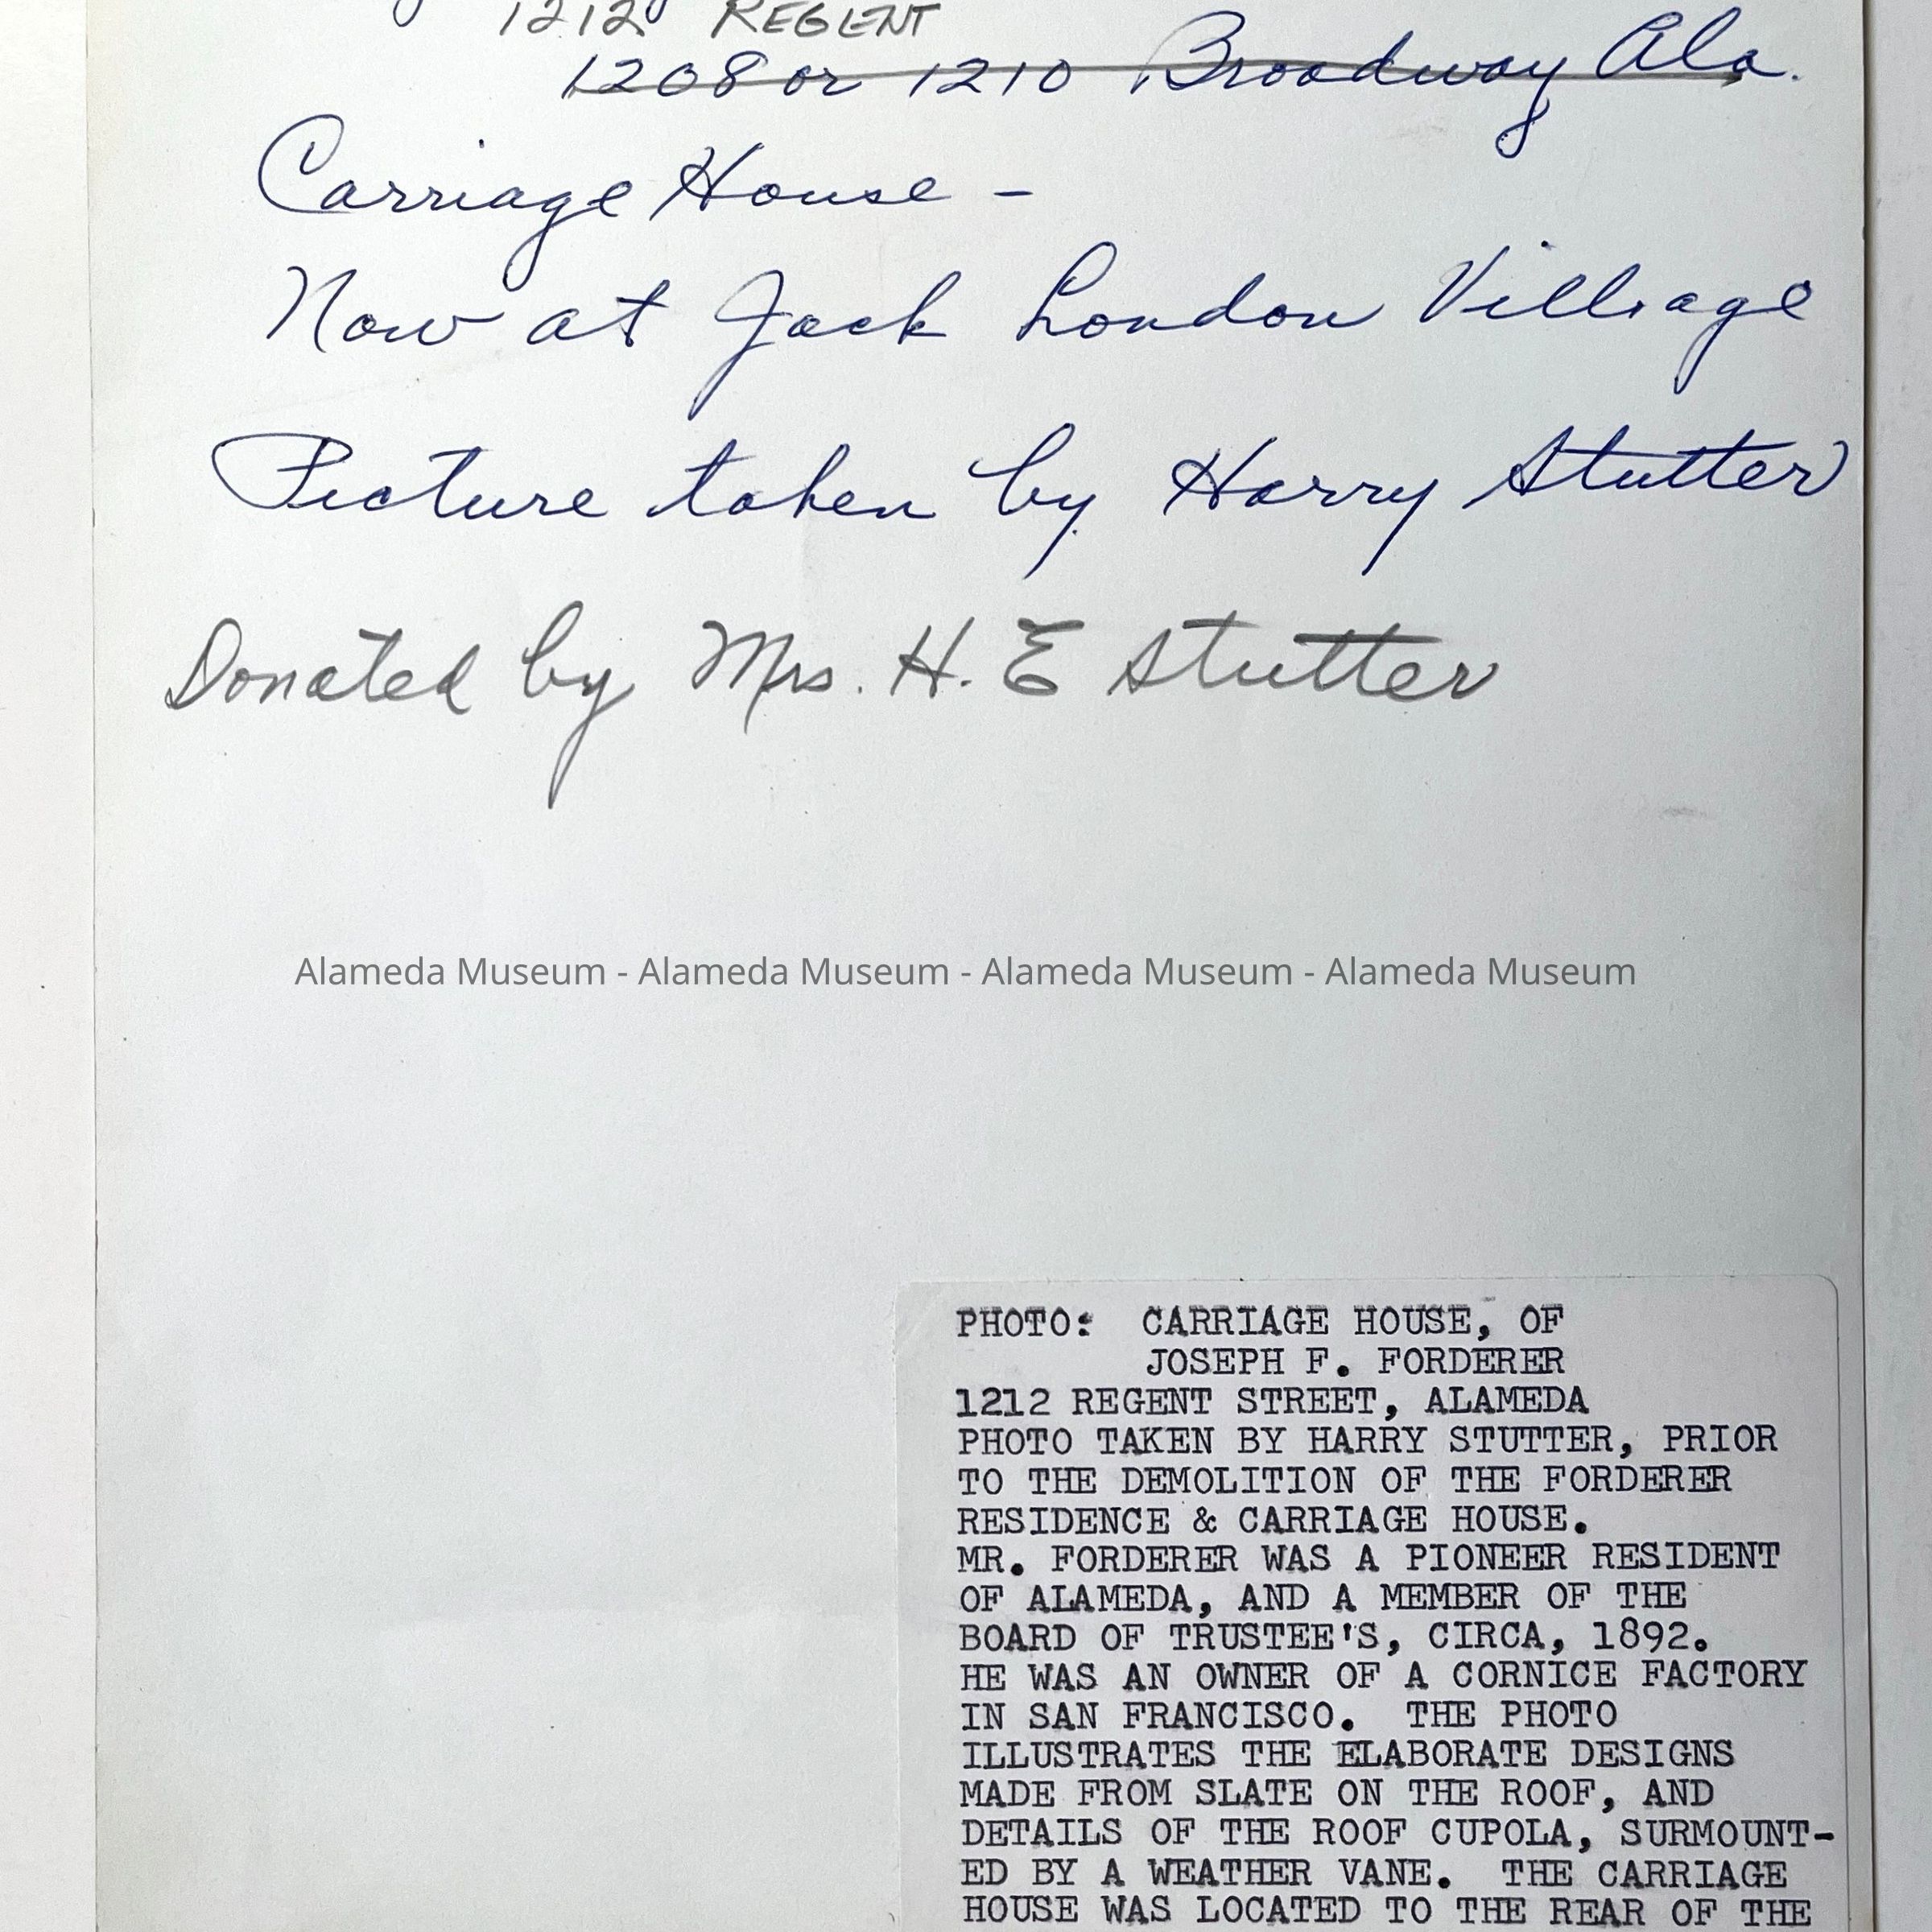 1212 REGENT
1208 or 1210 Broadway Ala.
Carriage House -
Now at Jack London Village
Picture taken by Harry Stutter
Donated by Mrs. H. E Stutter
Alameda Museum - Alameda Museum - Alameda Museum - Alameda Museum
PHOTO: CARRIAGE HOUSE, OF
JOSEPH F. FORDERER
1212 REGENT STREET, ALAMEDA
PHOTO TAKEN BY HARRY STUTTER, PRIOR
TO THE DEMOLITION OF THE FORDERER
RESIDENCE & CARRIAGE HOUSE.
MR. FORDERER WAS A PIONEER RESIDENT
OF ALAMEDA, AND A MEMBER OF THE
BOARD OF TRUSTEE'S, CIRCA, 1892.
HE WAS AN OWNER OF A CORNICE FACTORY
IN SAN FRANCISCO. THE PHOTO
ILLUSTRATES THE ELABORATE DESIGNS
MADE FROM SLATE ON THE ROOF, AND
DETAILS OF THE ROOF CUPOLA, SURMOUNT-
ED BY A WEATHER VANE. THE CARRIAGE
HOUSE WAS LOCATED TO THE REAR OF THE